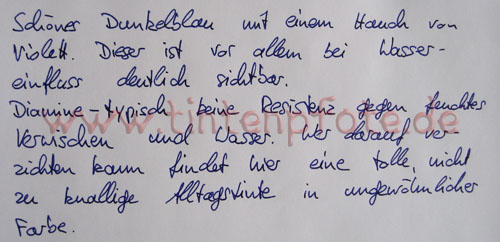 Schönes Dunkelblau mit einem Hauch von
Violett. Dieser ist vor allem bei Wasser-
einfluss deutlich sichtbar.
Diamine-typisch keine Resistenz gegen feuchtes
www.tintenpfote.de
Verwischen und Wasser. Wer darauf ver-
zichten kann findet hier eine tolle, nicht
zu knallige Alltagstinte in ungewöhnlicher
Farbe.